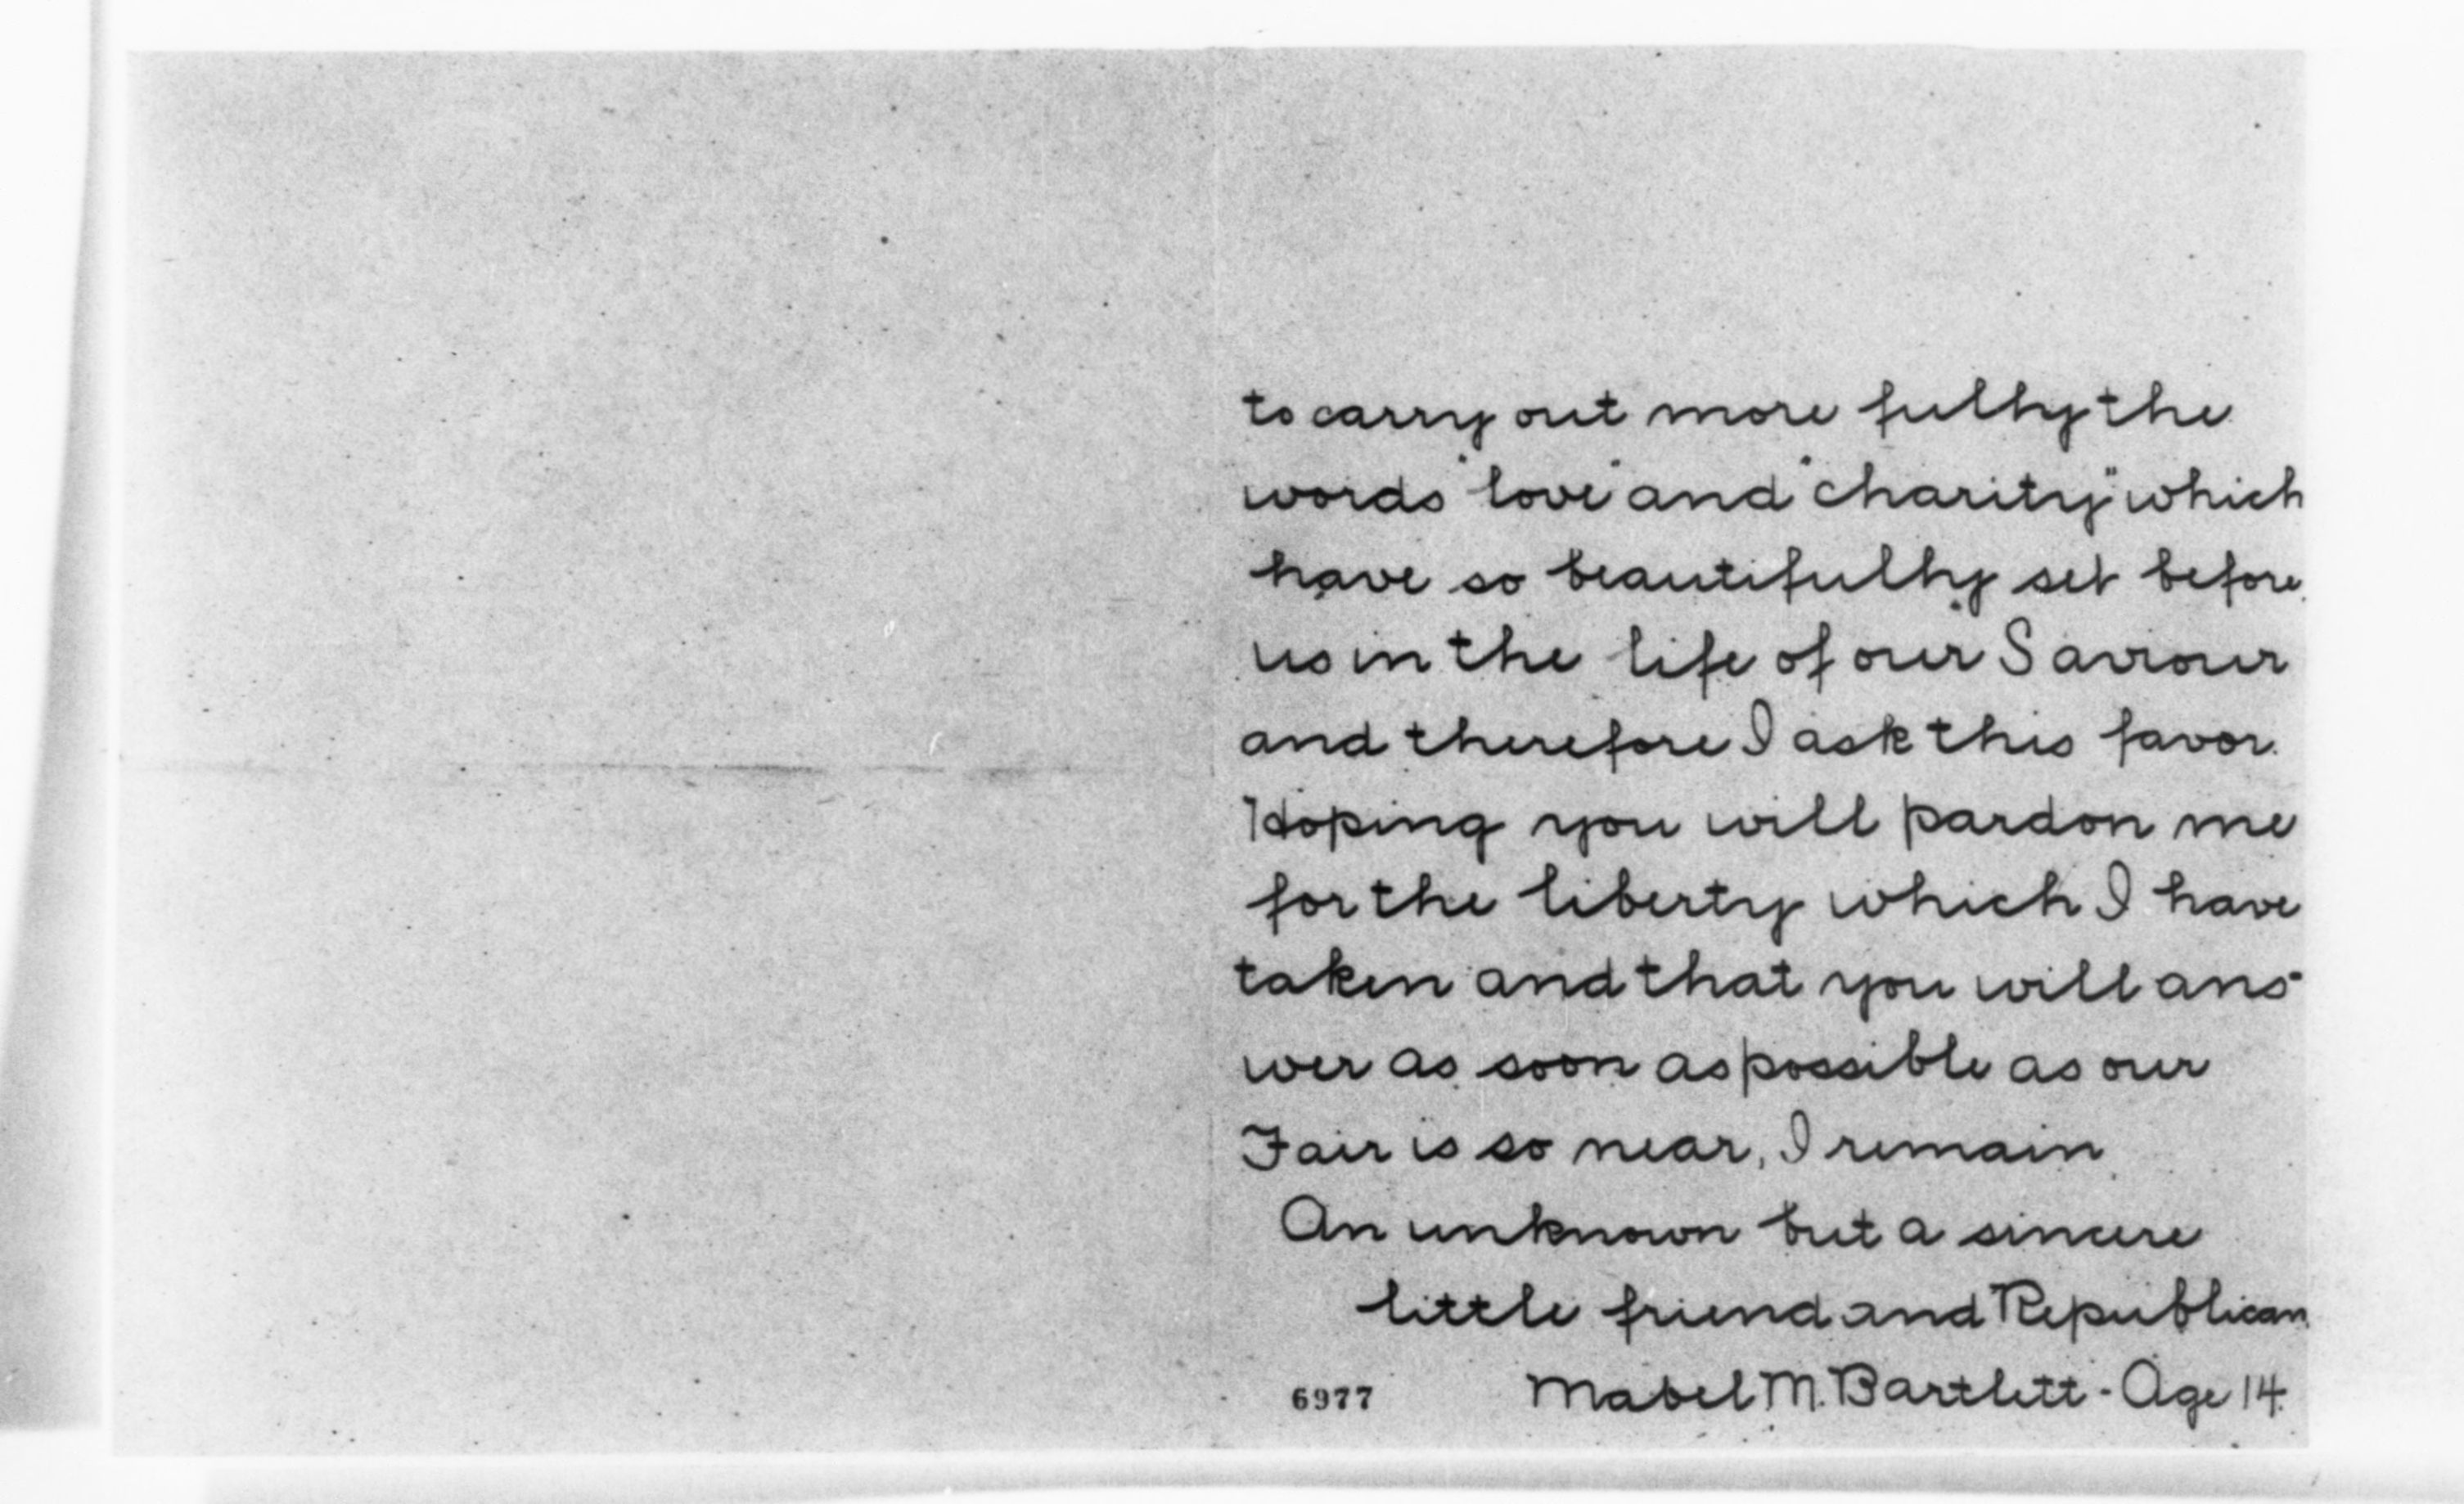 to carry out more fully the
words "love" and "charity" which
have so beautifully set before
us in the life of our Saviour
and therefore I ask this favor.
Hoping you will pardon me
for the liberty which I have
taken and that you will ans-
wer as soon as possible as our
Fair is so near, I remain
An unknown but a sincere
little friend and Republican
Mabel M. Bartlett - Age 14.
6977